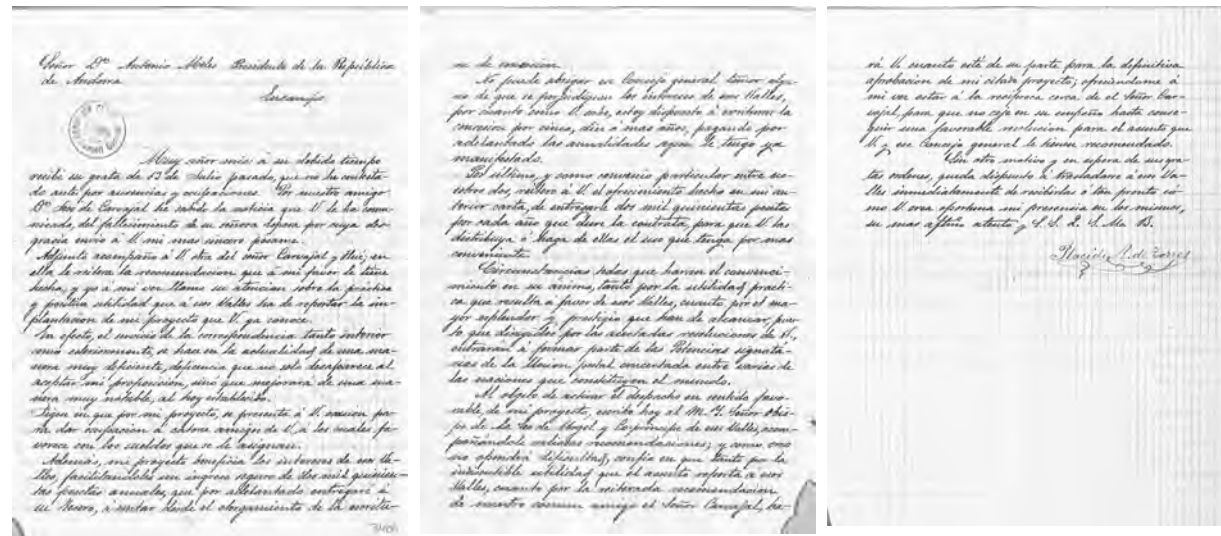 Señor Dn Antonio Moles Presidente de la República
de Andorra
Encamp
Muy señor mio: á su debido tiempo
recibí su grata de 13 de Julio pasado, que no he contesta-
do antes por ausencias y ocupaciones. Por nuestro amigo
Dn José de Carvajal he sabido la noticia que V. le ha comu-
nicado, del fallecimiento de su señora esposa por cuya des-
gracia envio á V. mi mas sincero pésame.
Adjunta acompaño á V. otra del señor Carvajal y Hué; en
ella le reitera la recomendacion que á mi favor le tiene
hecha, y yo á mi vez llamo su atencion sobre la práctica
y positiva utilidad que á esos Valles ha de reportar la im-
plantacion de mi proyecto que V. ya conoce.
En efecto, el servicio de la correspondencia tanto interior
como exteriormente, se hace en la actualidad de una ma-
nera muy deficiente, deficiencia que no solo desaparece al
aceptar mi proposicion, sino que mejorará de una ma-
nera muy notable, al hoy establecido.
en que por mi proyecto, se presenta á V. ocasion pa-
ra dar ocupacion á catorce amigos de V. á los cuales fa-
vorece con los sueldos que se le asignan.
Además, mi proyecto beneficia los intereses de esos Va-
lles, facilitandoles un ingreso seguro de dos mil quinien-
tas pesetas anuales, que por adelantado entregaré á
su Tesoro, á contar desde el otorgamiento de la escritu-
ra de concesion.
No puede abrigar ese Consejo general temor algu-
no de que se perjudiquen los intereses de esos Valles,
por cuanto como V. sabe, estoy dispuesto á continuar la
concesion por cinco, diez ó mas años, pagando por
adelantado las anualidades segun le tengo ya
manifestado.
Por último, y como convenio particular entre no-
sotros dos, reitero á V. el ofrecimiento hecho en mi an-
terior carta, de entregarle dos mil quinientas pesetas
por cada año que dure la contrata, para que V. las
distribuya ó haga de ellas el uso que tenga por mas
conveniente.
Circunstancias todas que harán el convenci-
miento en su ánimo, tanto por la utilidad practi-
ca que resulta á favor de esos Valles, cuanto por el ma-
yor esplendor y prestigio que han de alcanzar, pues-
to que dirigidos por las acertadas resoluciones de V.,
entrarán á formar parte de las Potencias signata-
rias de la Union postal concertada entre varias de
las naciones que constituyen el mundo.
Al objeto de activar el despacho en sentido favo-
rable, de mi proyecto, escribo hoy al M. Y. Señor Obis-
po de la Seo de Urgel y Copríncipe de esos Valles, acom-
pañándole valiosas recomendaciones; y como creo
no opondrá dificultad, confio en que tanto por la
indiscutible utilidad que el asunto reporta á esos
Valles, cuanto por la reiterada recomendacion
de nuestro comun amigo el Señor Carvajal, ha-
rá V. cuanto esté de su parte para la definitiva
aprobacion de mi citado proyecto; ofreciendome á
mi vez estar á la recíproca cerca de el Señor Car-
vajal, para que no ceje en su empeño hasta conse-
guir una favorable resolucion para el asunto que
V. y ese Consejo general le tienen recomendado.
Sin otro motivo y en espera de sus gra-
tas ordenes, queda dispuesto á trasladarse á esos Va-
lles inmediatamente de recibirlas ó tan pronto co-
mo V. crea oportuna mi presencia en los mismos,
su mas affmo atento y S. S. Q. S. M. B.
Placido A. de Torres